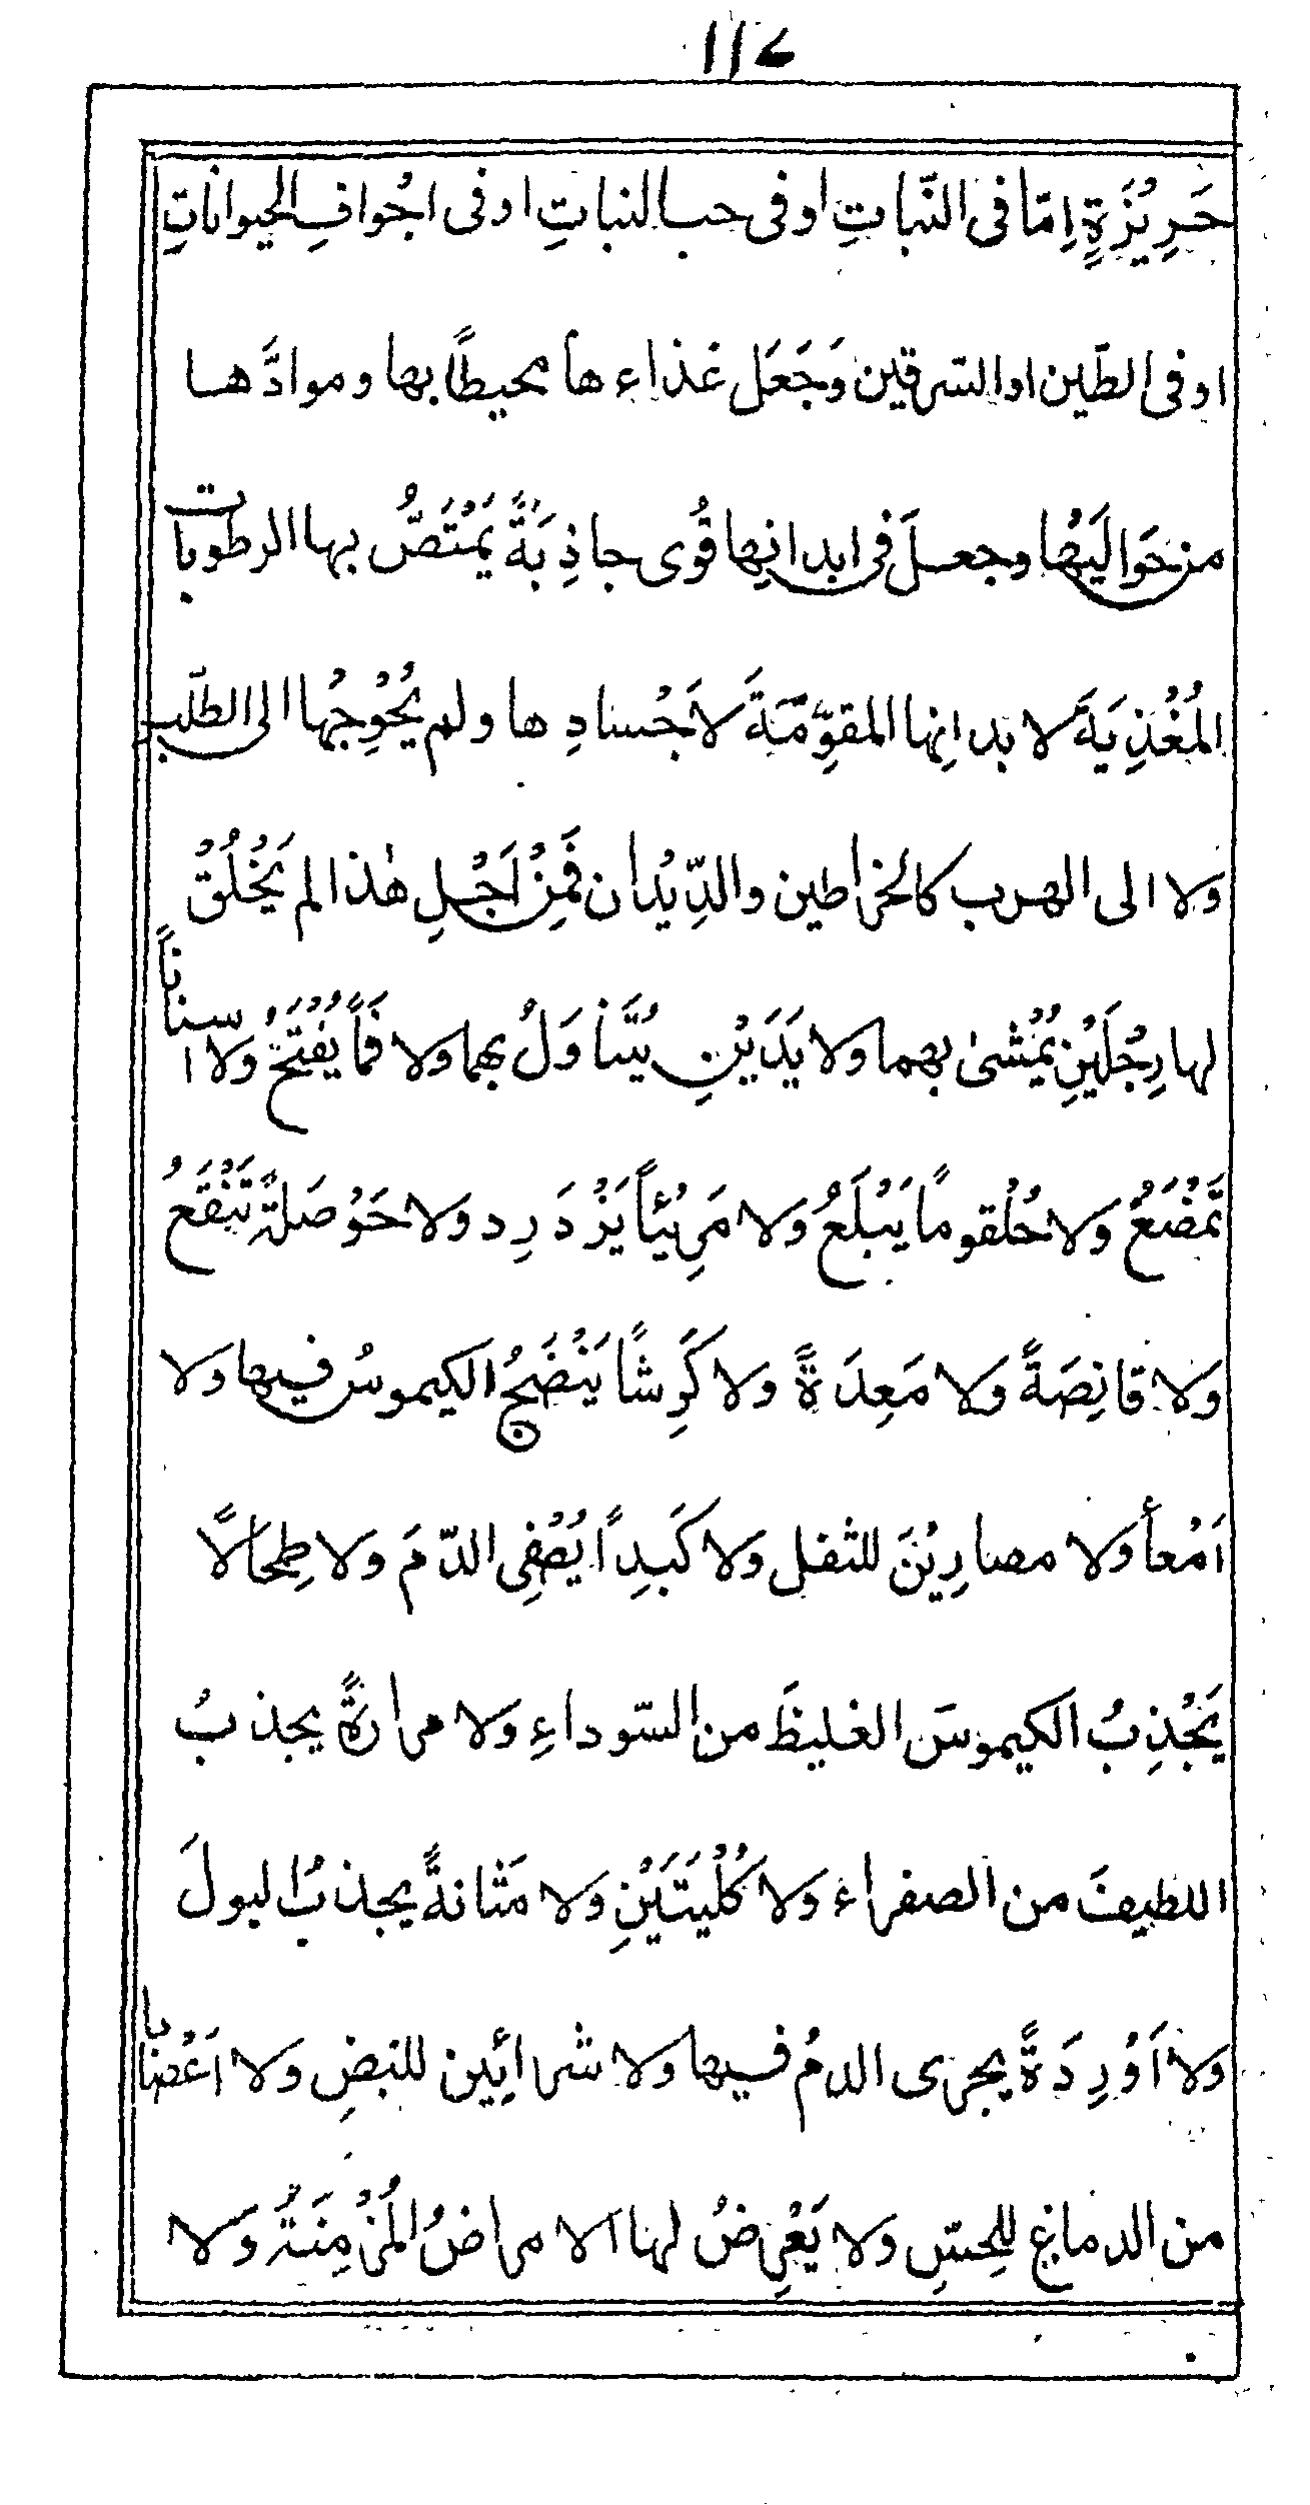 ١١٧
حَرِيْزَةٍ اِمّا فى النّباتِ او فى حب النباتِ او فى اجُوافِ الحيواناتِ
او فى الطّين او السّرقين وَجَعَل غذاءها محيطًا بها وموادَّها
من حَوالَيْها وجعلَ فى ابدانِها قُوى جاذِبَةً يَمْتَصُّ بها الرطوبات
المُغْذِيَةَ لابدانِها المقوِّمَةَ لاَجْسادِها ولم يُحْوِجْها الى الطّلب
ولا الى الهرب كالخراطين والدِّيْدان فَمِنْ اَجْلِ هٰذا لم يَخْلُقْ
لها رِجْلَيْنِ يُمْشىٰ بهما ولا يَدَيْنِ يُتَناوَلُ بهما ولا فَمًا يُفْتَحُ ولا اسناناً
تَمْضَغُ ولا حُلْقومًا يَبْلَعُ ولا مَرِيْئاً يَزْدَرِد ولا حَوْصَلةً تَنْقَعُ
ولا قانِصَةً ولا مَعِدَةً ولا كَرِشًا يَنْضَجُ الكيموسُ فيها ولا
اَمْعأ ولا مصارِيْنَ للثفل ولا كَبِداً يُصْفِى الدّمَ ولا طِحَالًا
يَجْذِبُ الكيموسَ الغليظَ من السّوداءِ ولا مرارةً يجذبُ
اللطيفَ من الصفراء ولا كُلْيَتَيْنِ ولا مَثانةً يجذبُ البولَ
ولا اَوْرِدَةً يجرى الدمُ فيها ولا شرائِين للنبضِ ولا اَعْضابا
من الدماغِ للحِسّ ولا يَعْرِضُ لها الامراضُ المُزْمِنَةُ ولا